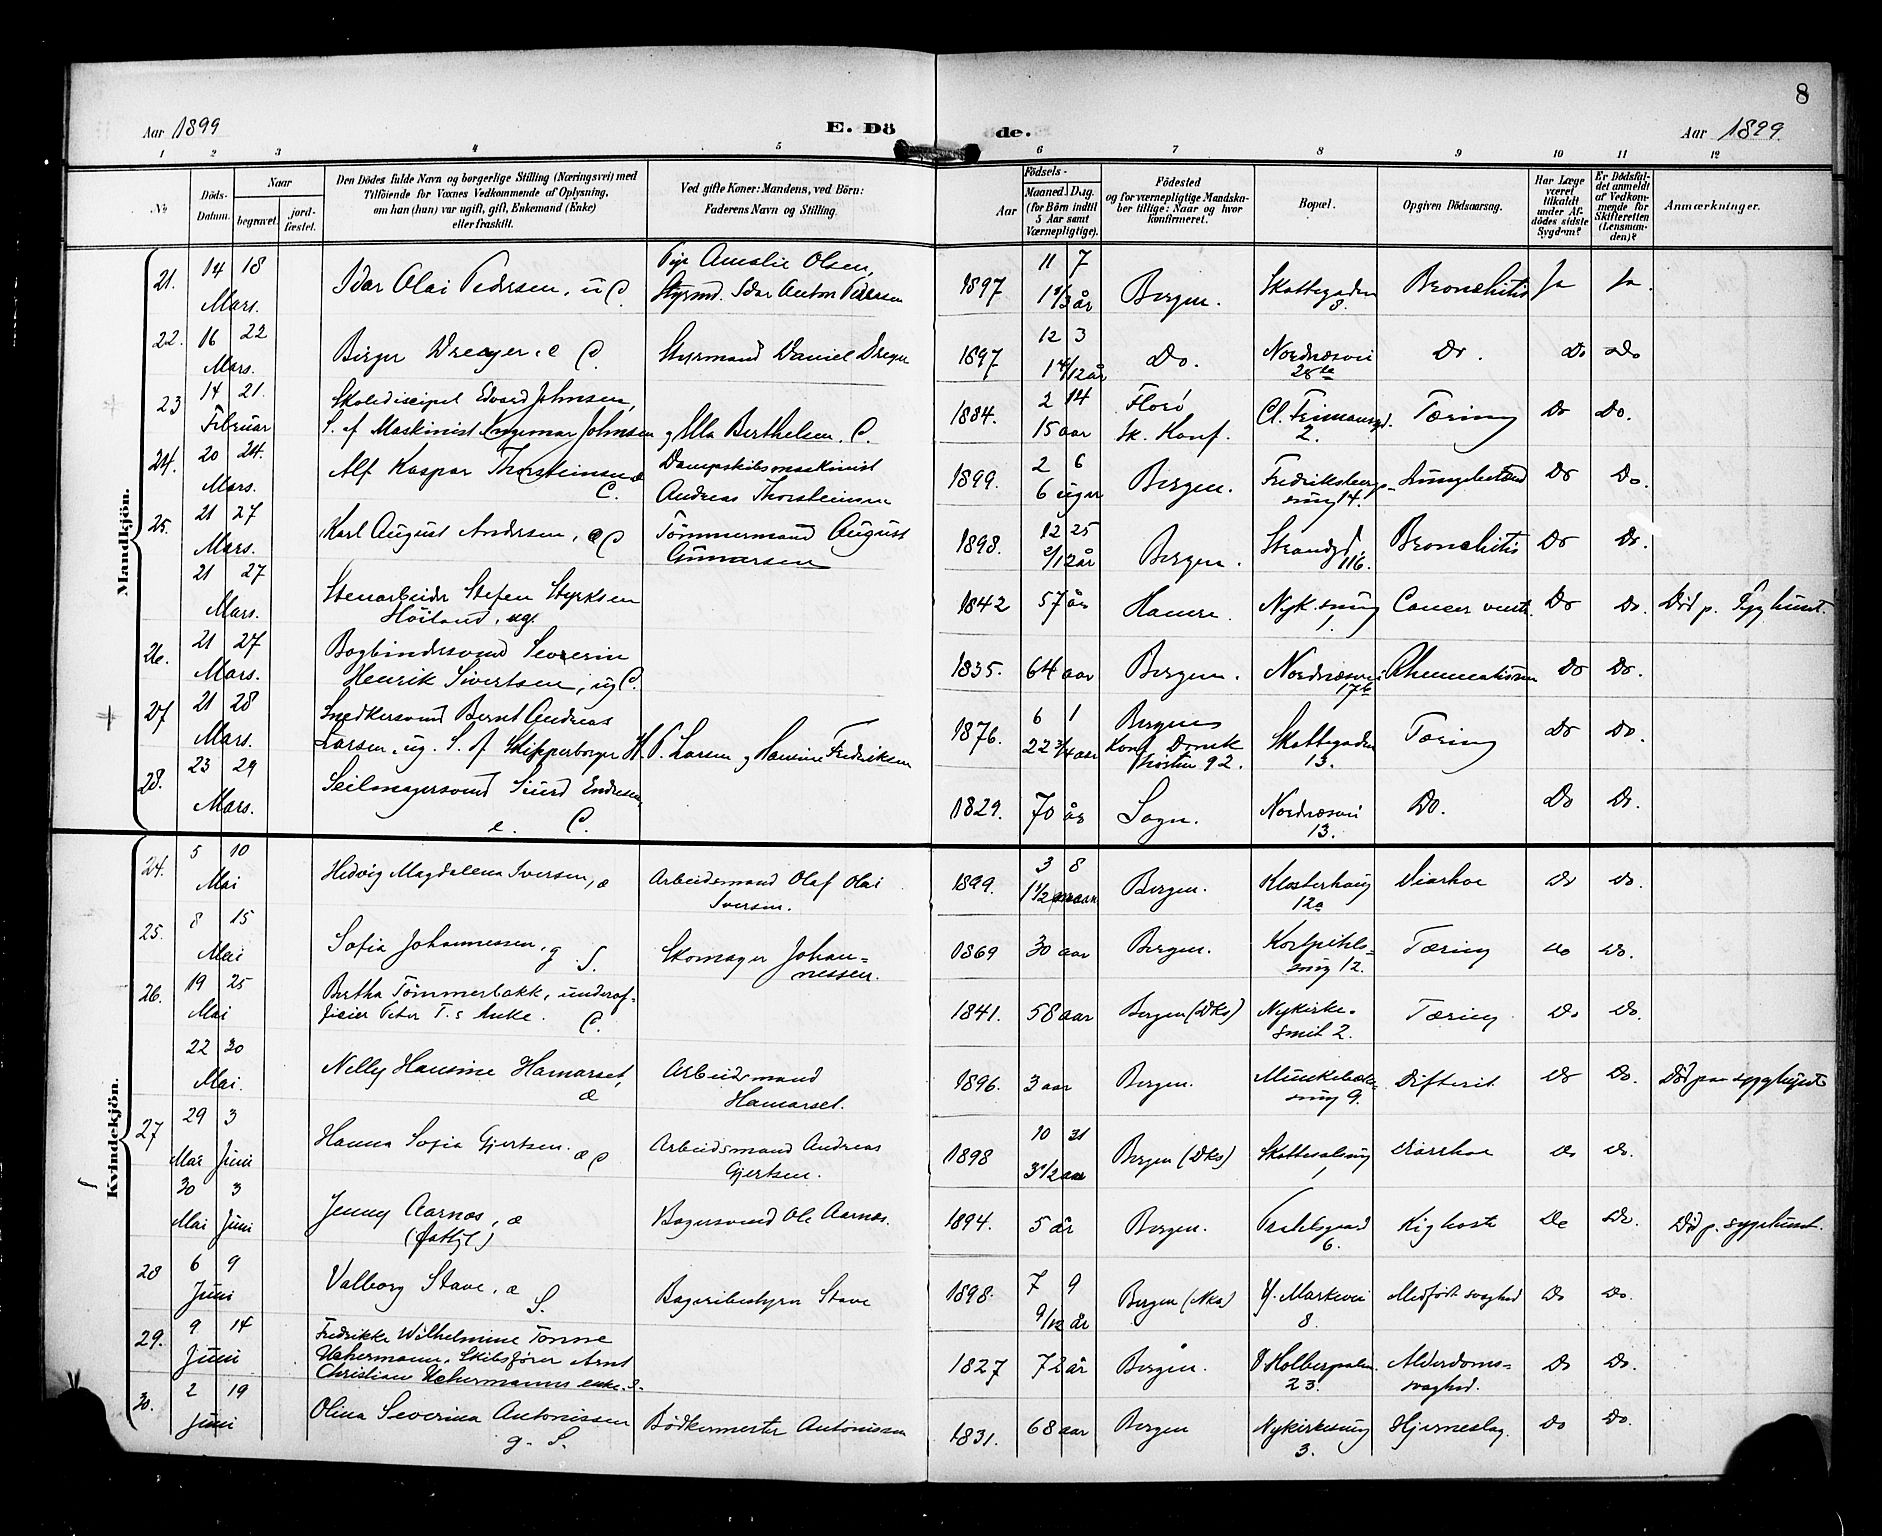 8
Aar 1899
E. Dö
de.
Aar 1899.
1 2 3 4 5 6 7 8 9 10 11 12
No.
Döds-Datum.
Naar
begravet.
jord-fæstet.
Den Dödes fulde Navn og borgerlige Stilling (Næringsvei) med
Tilföiende for Voxnes Vedkommende af Oplysning,
om han (hun) var ugift, gift, Enkemand (Enke)
eller fraskilt.
Ved gifte Koner: Mandens, ved Börn:
Faderens Navn og Stilling.
Födsels-
Aar
Maaned. Dag.
(for Börn indtil
5 Aar samt
Værnepligtige).
Födested
og for værnepligtige Mandska-
ber tillige: Naar og hvor
konfirmeret.
Bopæl.
Opgiven Dödsaarsag.
Har Læge
været
tilkaldt
under Af-
dödes sidste
Sygdom?
Er Dödsfal-
det anmeldt
af Vedkom-
mende for
Skifteretten
(Lensman-
den)?
Anmærkninger.
Mandkjön.
21. 14 18 Mars. Idar Olai Pedersen, u C. Pige Amalie Olsen,
Styrmd. Idar Anton Pedersen 1897 11 7 1 1/3 år Bergen. Skottegaden 8. Bronchitis Ja Ja.
22. 16 22 Mars. Birger Dreyer, C. Styrmand Daniel Dreyer 1897 12 3 1 4/12 år Do. Nordnæsvei Do. Do Do
23 14 21. Februar Skolediscipel Edvard Johnsen,
S. af Maskinist Ingemar Johnsen og Ella Berthelsen. C. 1884. 2 14 15 aar Florö Ik. Konf. Cl. Frimansgd. 2. Tæring Do Do.
24. 20 24. Mars. Alf Kaspar Thorsteinsen C. Dampskibsmaskinist
Andreas Thorsteinsen 1899. 2 6 6 uger Bergen. Fredriksberg-
smug 14. Do Do.
25. 21 27 Mars. Karl August Andersen, æ C Tömmermand August
Gunnarsen 1898. 12 25 2/12 år Bergen. Strandgd. 116. Bronchitis Do Do.
21 27 Mars. Stenarbeider Stefen Styrksen
Höiland, ug. 1842 57 år Nyk. smug 1. Cancer vent. Do Do. Död p. Sygehuset.
26. 21 27 Mars. Bogbindersvend Severin
Henrik Sivertsen, ug C. 1835. 64 aar Bergen. Nordnæsvei Rheumatisme Do Do.
27 21 28 Mars. Snedkersvend Bernt Andreas
Larsen, ug. S. af Skipperborger H. P. Larsen og Hansine Fredriksen 1876. 6 1 22 3/4 aar Bergen
Konf. Domk
hösten 92. Skottegaden 13. Tæring Do Do.
28. 23 29 Mars. Seilmagersvend Siurd Endresen
e. C. 1829. 70 år Sogn. Nordnæsvei 13. Do. Do Do.
Kvindekjön.
24. 5 10 Mai Hedvig Magdalena Iversen, æ Arbeidsmand Olaf Olai
Iversen. 1899. 3 8 1 1/2 maan Bergen. Klosterhaug 12a Diarhoe Do Do.
25. 8 15 Mai Sofia Johannessen, g S. Skomager Johan=
nessen. 1869 30 aar Bergen. Korspikels-
smug 12. Tæring Do Do.
26. 19 25 Mai Bertha Tömmerbakk, underof-
ficier Peter T.s Enke. C. 1841. 58 aar Bergen (Dks) Nykirke-
smit 2. Tæring Do Do.
22 30 Mai. Nelly Hansine Hamarset, æ Arbeidsmand
Hamarset. 1896. 3 aar Bergen. Munkebæk-
smug 9. Difterit Do Do. Död paa sygehuset
27 29 3 Mai Juni Hanna Sofia Gjertsen. æ C Arbeidsmand Andreas
Gjertsen. 1898 10 31 Bergen (Dks) 1 Diarrhoe Do Do.
30 3 Mai Juni Jenny Aarnæs, æ Bagersvend Ole Aarnæs. 1894. 5 år Bergen. 6. Kighoste Do Do. Död p. sygehuset.
28 6 9 Juni Valborg Stave, æ S. Bageribestyrer Stave 1898. 7 9 9/12 år Bergen (Nks) Y. Markevei 8. Medfödt svaghed Do Do.
29. 9 14 Juni Fredrikke Wilhelmine Tonne
Uchermann, Skibsförer Arnt
Christian Uchermanns enke. S. 1827 72 år Bergen. Holbergsalm. 23. Alderdoms=
svaghed. Do Do.
30. 2 19 Juni Olina Severina Antonissen
g. S. Bödkermester Antonissen 1831. 68 aar Bergen Nykirkesmug 3. Hjerneslag. Do Do.